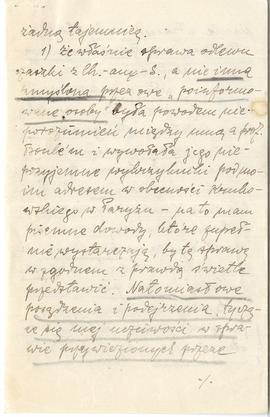 żadną tajemnicą.
1) że właśnie sprawa odlewu
czaszki z Ch.-aux-S., a nie inna
zmyślona przez owe „poinformo-
wane osoby" była powodem nie-
porozumień między mną a prof.
i wywołała jego nie-
przyjemne wykrzykniki pod mo-
im adresem w obecności
w Paryżu – na to mam
piśmienne dowody, które zupeł-
nie wystarczają, by tę sprawę
w zgodnem z prawdą świetle
przedstawić. Natomiastowe
posądzenia i podejrzenia, tyczą-
ce się mej uczciwości w spra-
wie przywiezionych przeze
./.